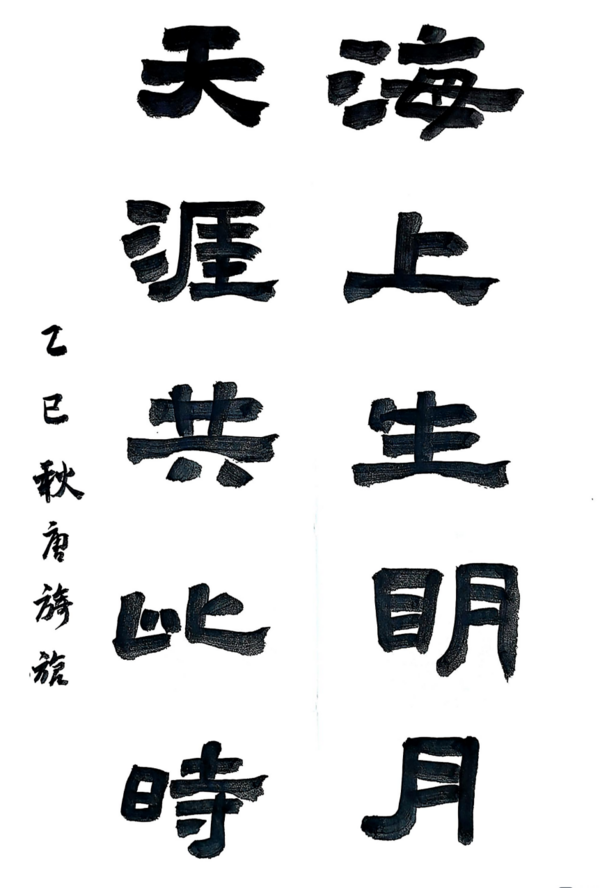 海上生明月
天涯共此時
乙巳秋唐旖旎